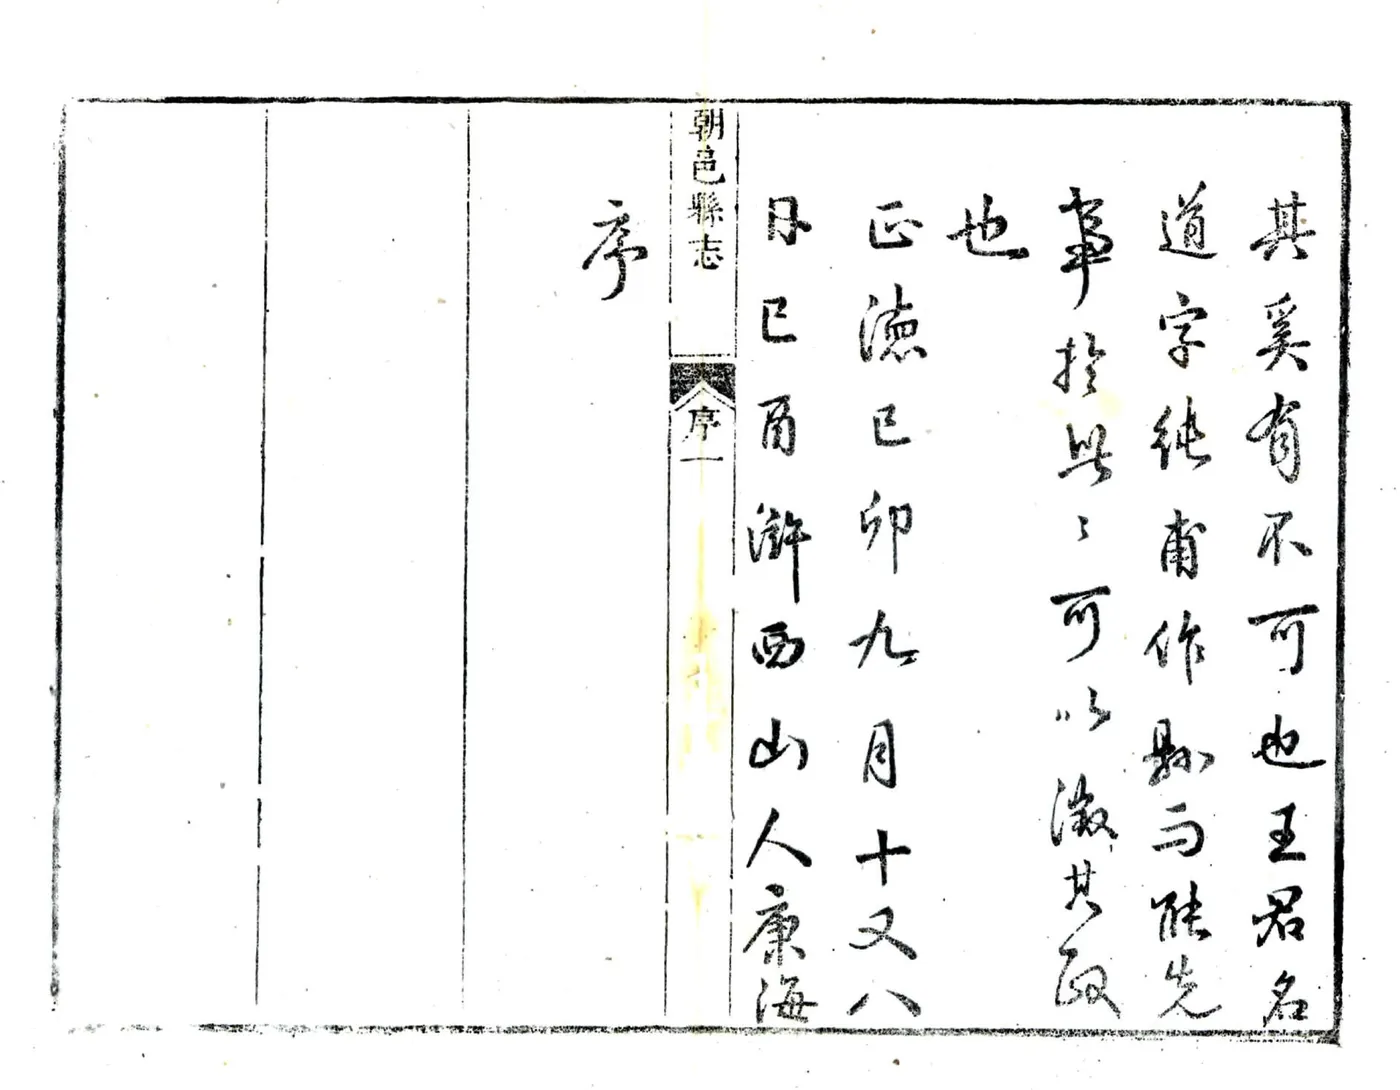 其奚有不可也王君名
道字純甫作縣而能先
事於此〻可以徵其政
也
正德己卯九月十又八
日己酉滸西山人康海
朝邑縣志
序一
序